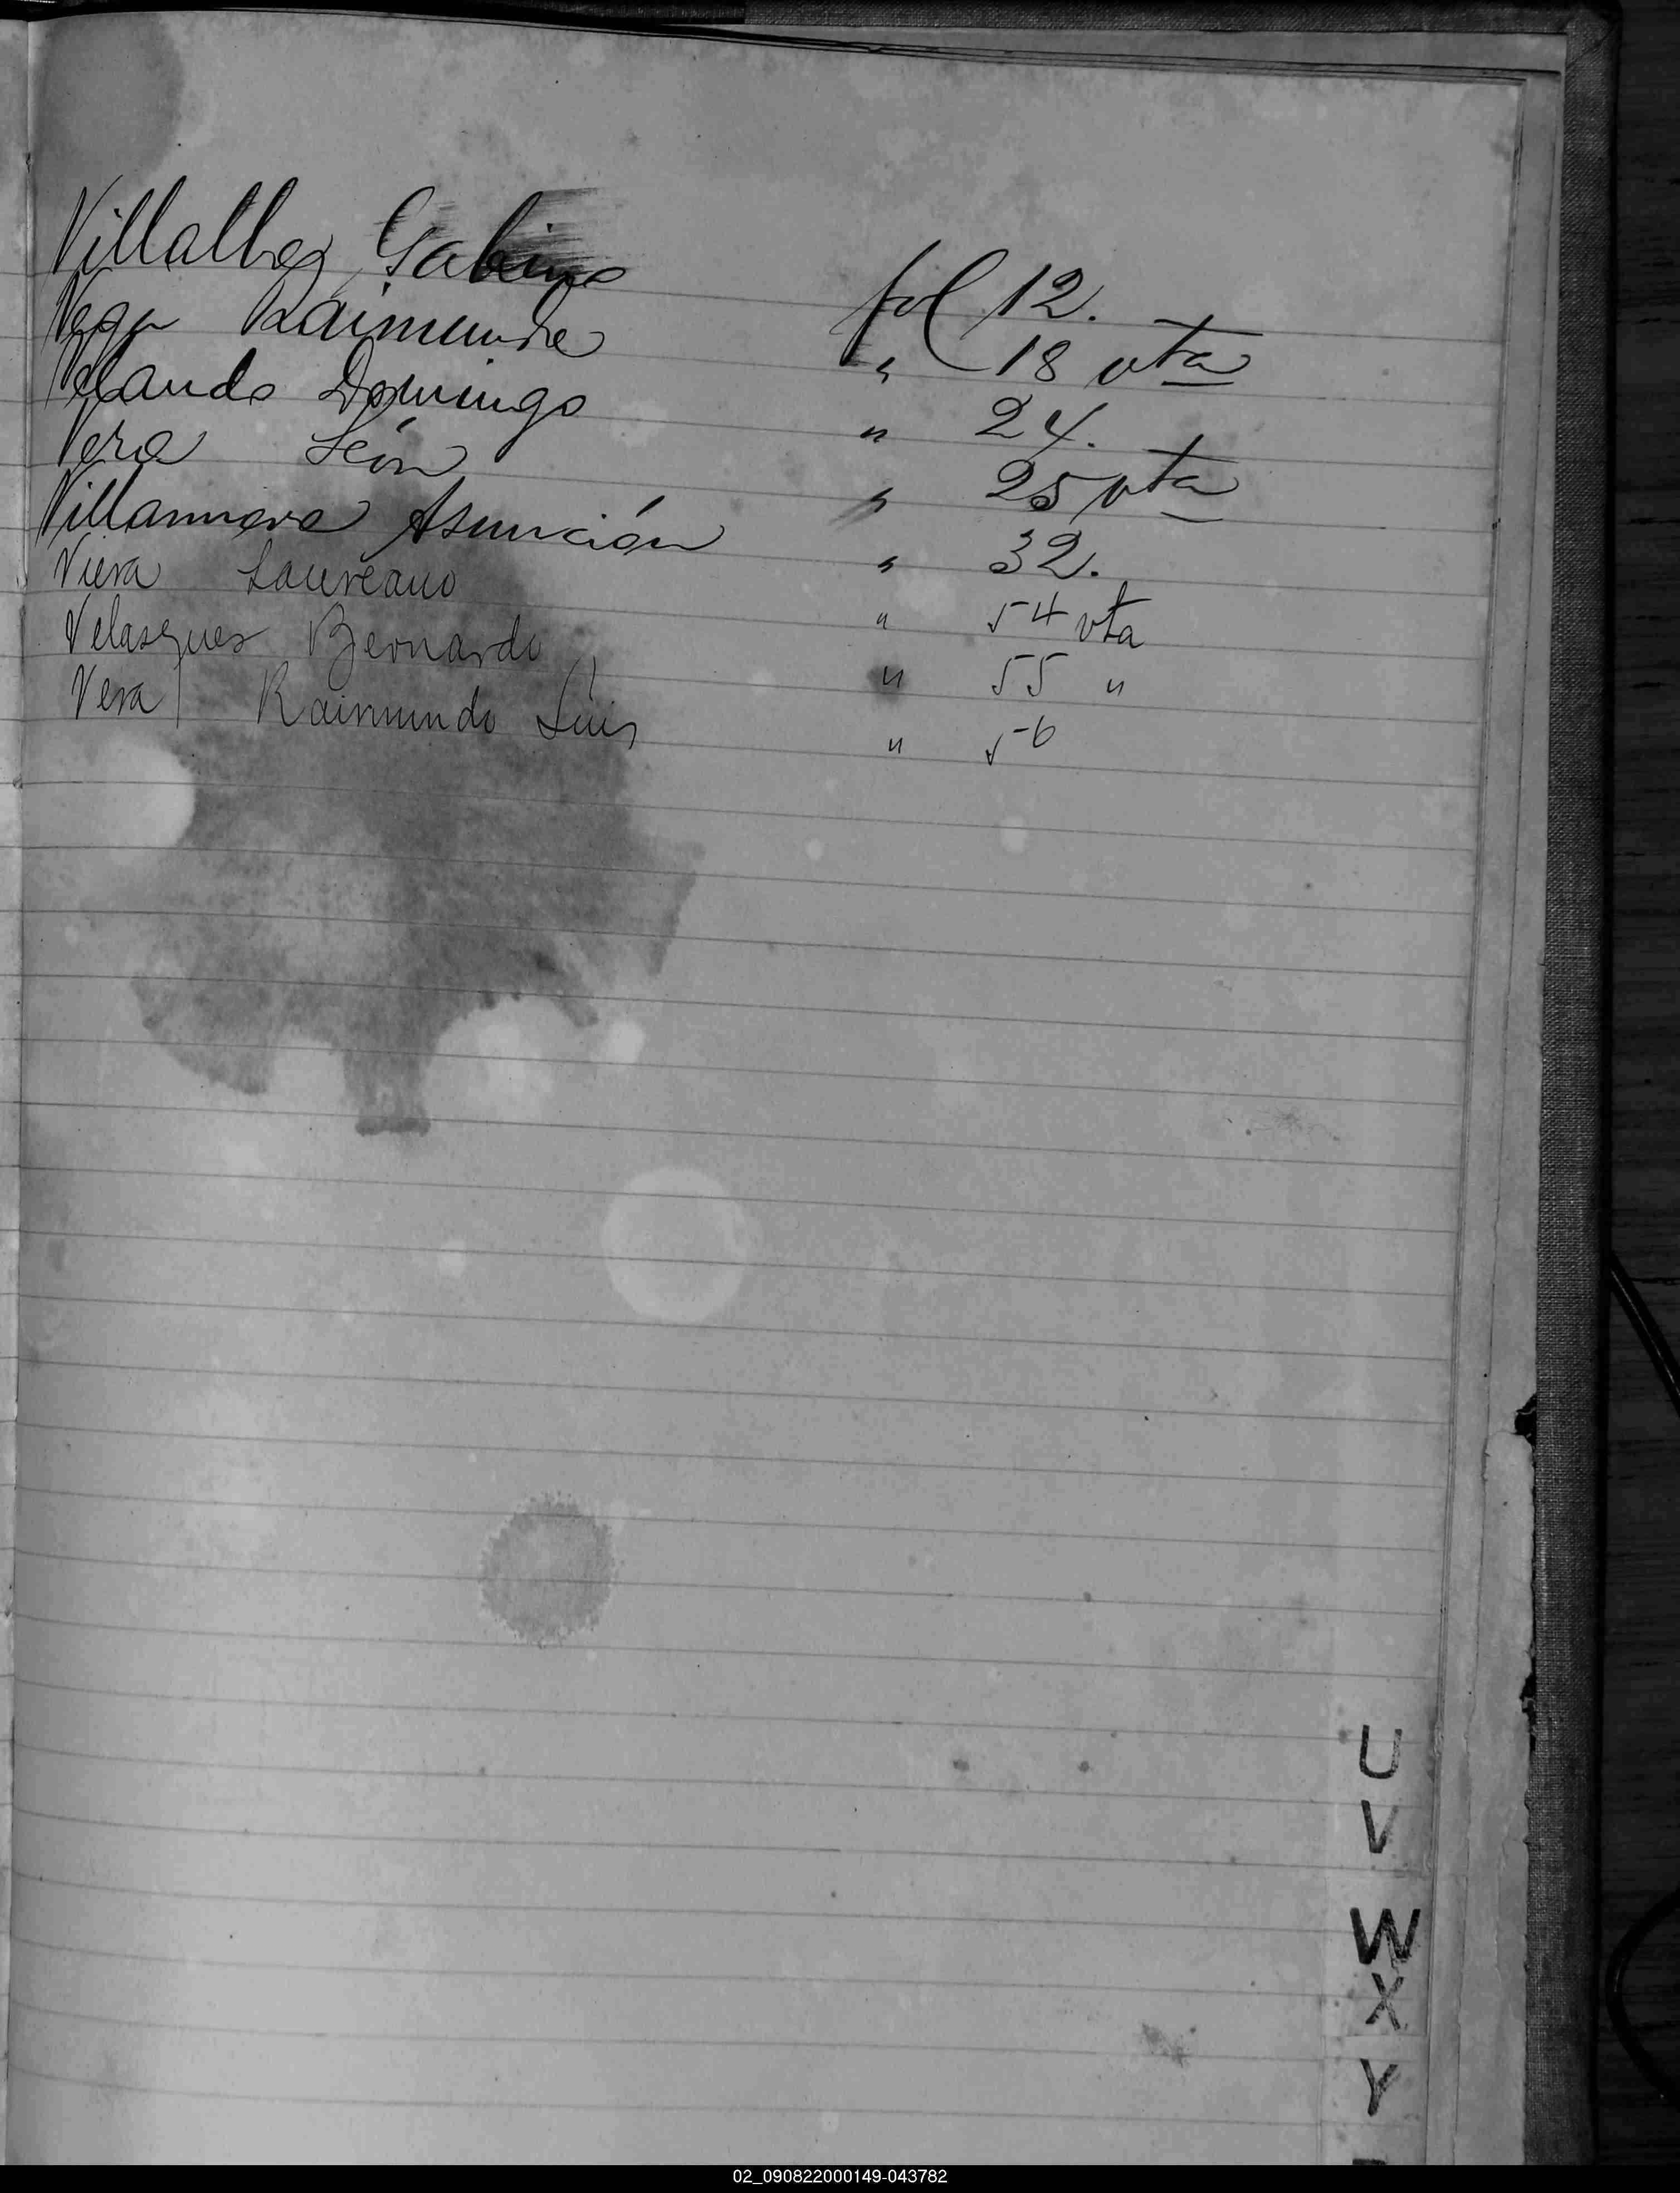 Villalba Gabino fol 12.
Vega Raimundo " 18 vta
Velando Domingo " 24.
Vera León " 25 vta
Villanueva Asunción " 32.
Viera Laureano " 54 vta
Velasquez Bernardo " 55 "
Vera Raimundo Luis " 56
U
V
W
X
Y
02_090822000149-043782